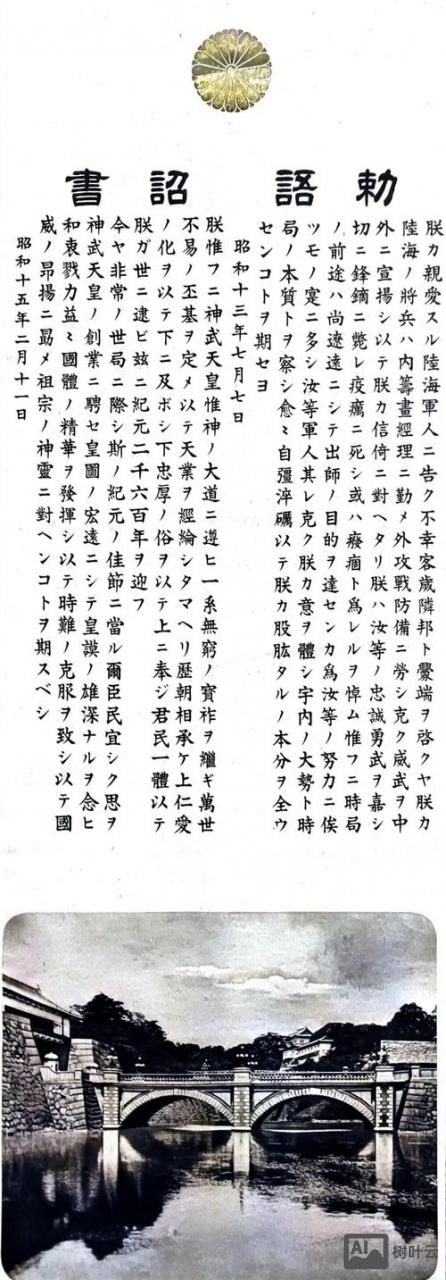 勅語
朕カ親愛スル陸海軍人ニ告ク不幸客歳隣邦ト釁端ヲ啓クヤ朕カ
陸海ノ將兵ハ內籌畫經理ニ勤メ外攻戰防備ニ勞シ克ク威武ヲ中
外ニ宣揚シ以テ朕カ信倚ニ對ヘタリ朕ハ汝等ノ忠誠勇武ヲ嘉シ
切ニ鋒鏑ニ斃レ疫癘ニ死シ或ハ癈痼ト爲レルヲ悼ム惟フニ時局
ノ前途ハ尚遼遠ニシテ出師ノ目的ヲ達センカ爲汝等ノ努力ニ俟
ツモノ寔ニ多シ汝等軍人其レ克ク朕カ意ヲ體シ宇內ノ大勢ト時
局ノ本質トヲ察シ愈〻自彊淬礪以テ朕カ股肱タルノ本分ヲ全ウ
センコトヲ期セヨ
昭和十三年七月七日
詔書
朕惟フニ神武天皇惟神ノ大道ニ遵ヒ一系無窮ノ寶祚ヲ繼ギ萬世
不易ノ丕基ヲ定メ以テ天業ヲ經綸シタマヘリ歷朝相承ケ上仁愛
ノ化ヲ以テ下ニ及ボシ下忠厚ノ俗ヲ以テ上ニ奉ジ君民一體以テ
朕ガ世ニ逮ビ玆ニ紀元二千六百年ヲ迎フ
今ヤ非常ノ世局ニ際シ斯ノ紀元ノ佳節ニ當ル爾臣民宜シク思ヲ
神武天皇ノ創業ニ騁セ皇圖ノ宏遠ニシテ皇謨ノ雄深ナルヲ念ヒ
和衷戮力益〻國體ノ精華ヲ發揮シ以テ時難ノ克服ヲ致シ以テ國
威ノ昂揚ニ勗メ祖宗ノ神靈ニ對ヘンコトヲ期スベシ
昭和十五年二月十一日
AI 树叶云